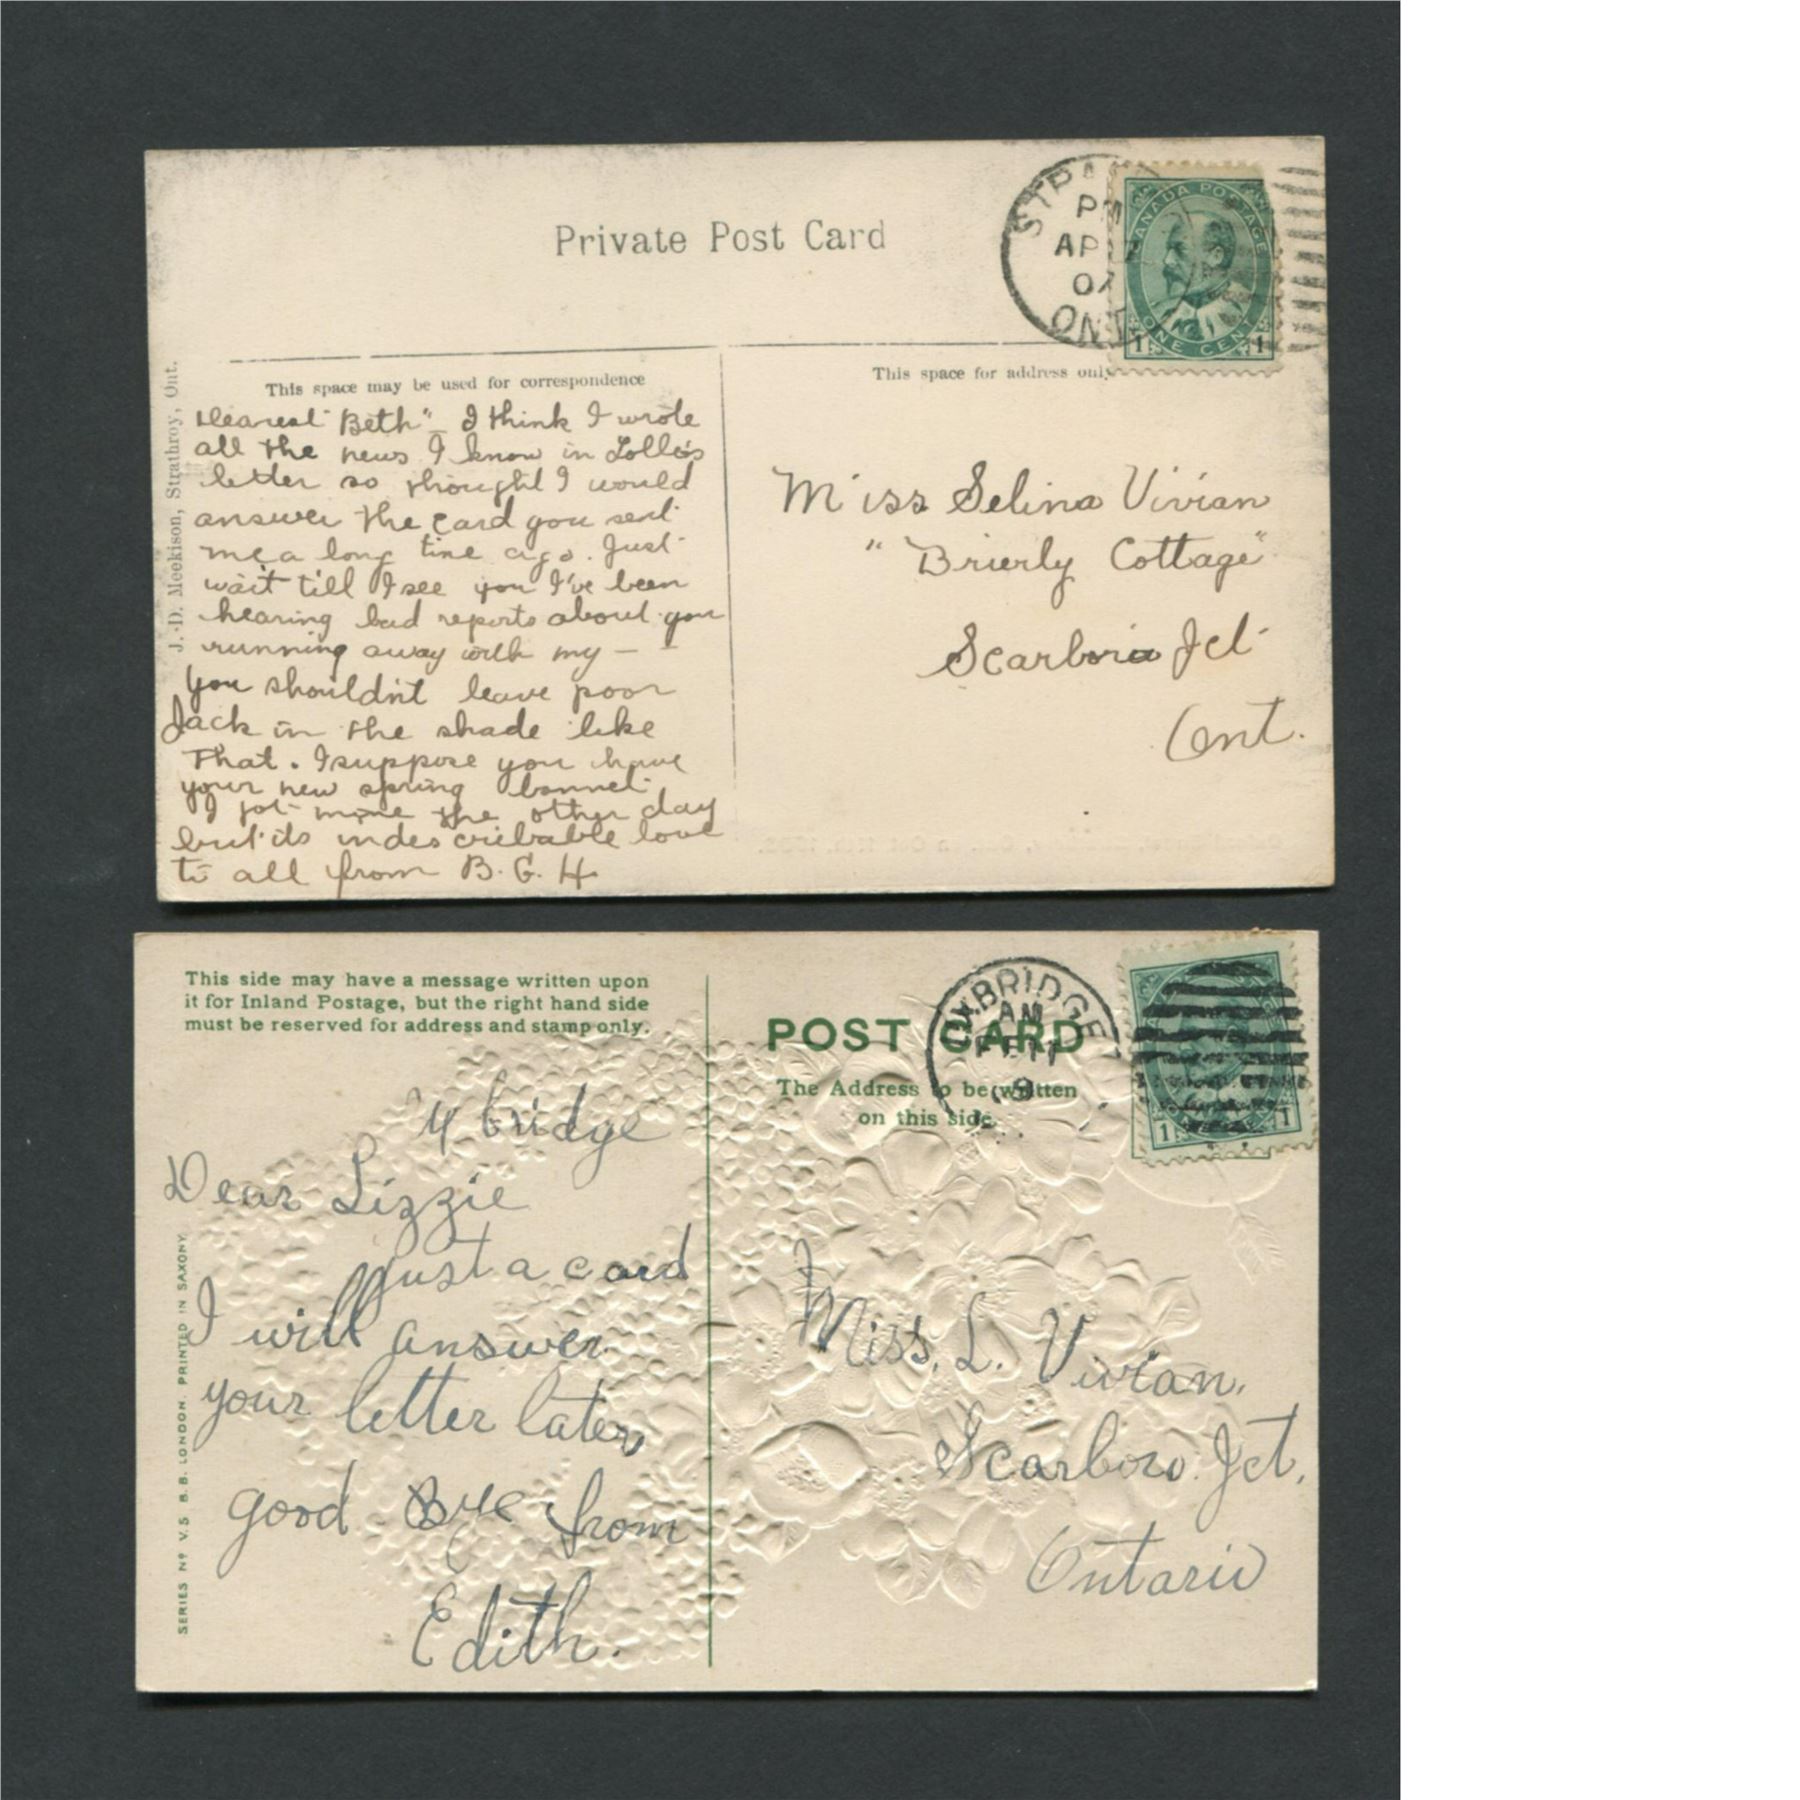 Private Post Card
STRA
PM
AP 7
07
ONT
CANADA POSTAGE
ONE CENT
1 1
This space may be used for correspondence
This space for address only
J. D. Meekison, Strathroy, Ont.
Dearest "Beth" – I think I wrote
all the news I know in Lollie's
letter so thought I would
answer the card you sent
me a long time ago. Just
wait till I see you I've been
hearing bad reports about you
running away with my – –
you shouldn't leave poor
Jack in the shade like
That. I suppose you have
your new spring bonnet
I got mine the other day
but its indescribable love
to all from B. G. H.
Miss Selina Vivian
"Brierly Cottage"
Scarboro Jct
Ont.
This side may have a message written upon
it for Inland Postage, but the right hand side
must be reserved for address and stamp only.
POST CARD
The Address to be written
on this side.
UXBRIDGE
AM
1 1
SERIES Nº V.5 B.B. LONDON. PRINTED IN SAXONY
Uxbridge
Dear Lizzie
just a card
I will answer
your letter later
good Bye from
Edith.
Miss. L. Vivian.
Scarboro. Jct.
Ontario